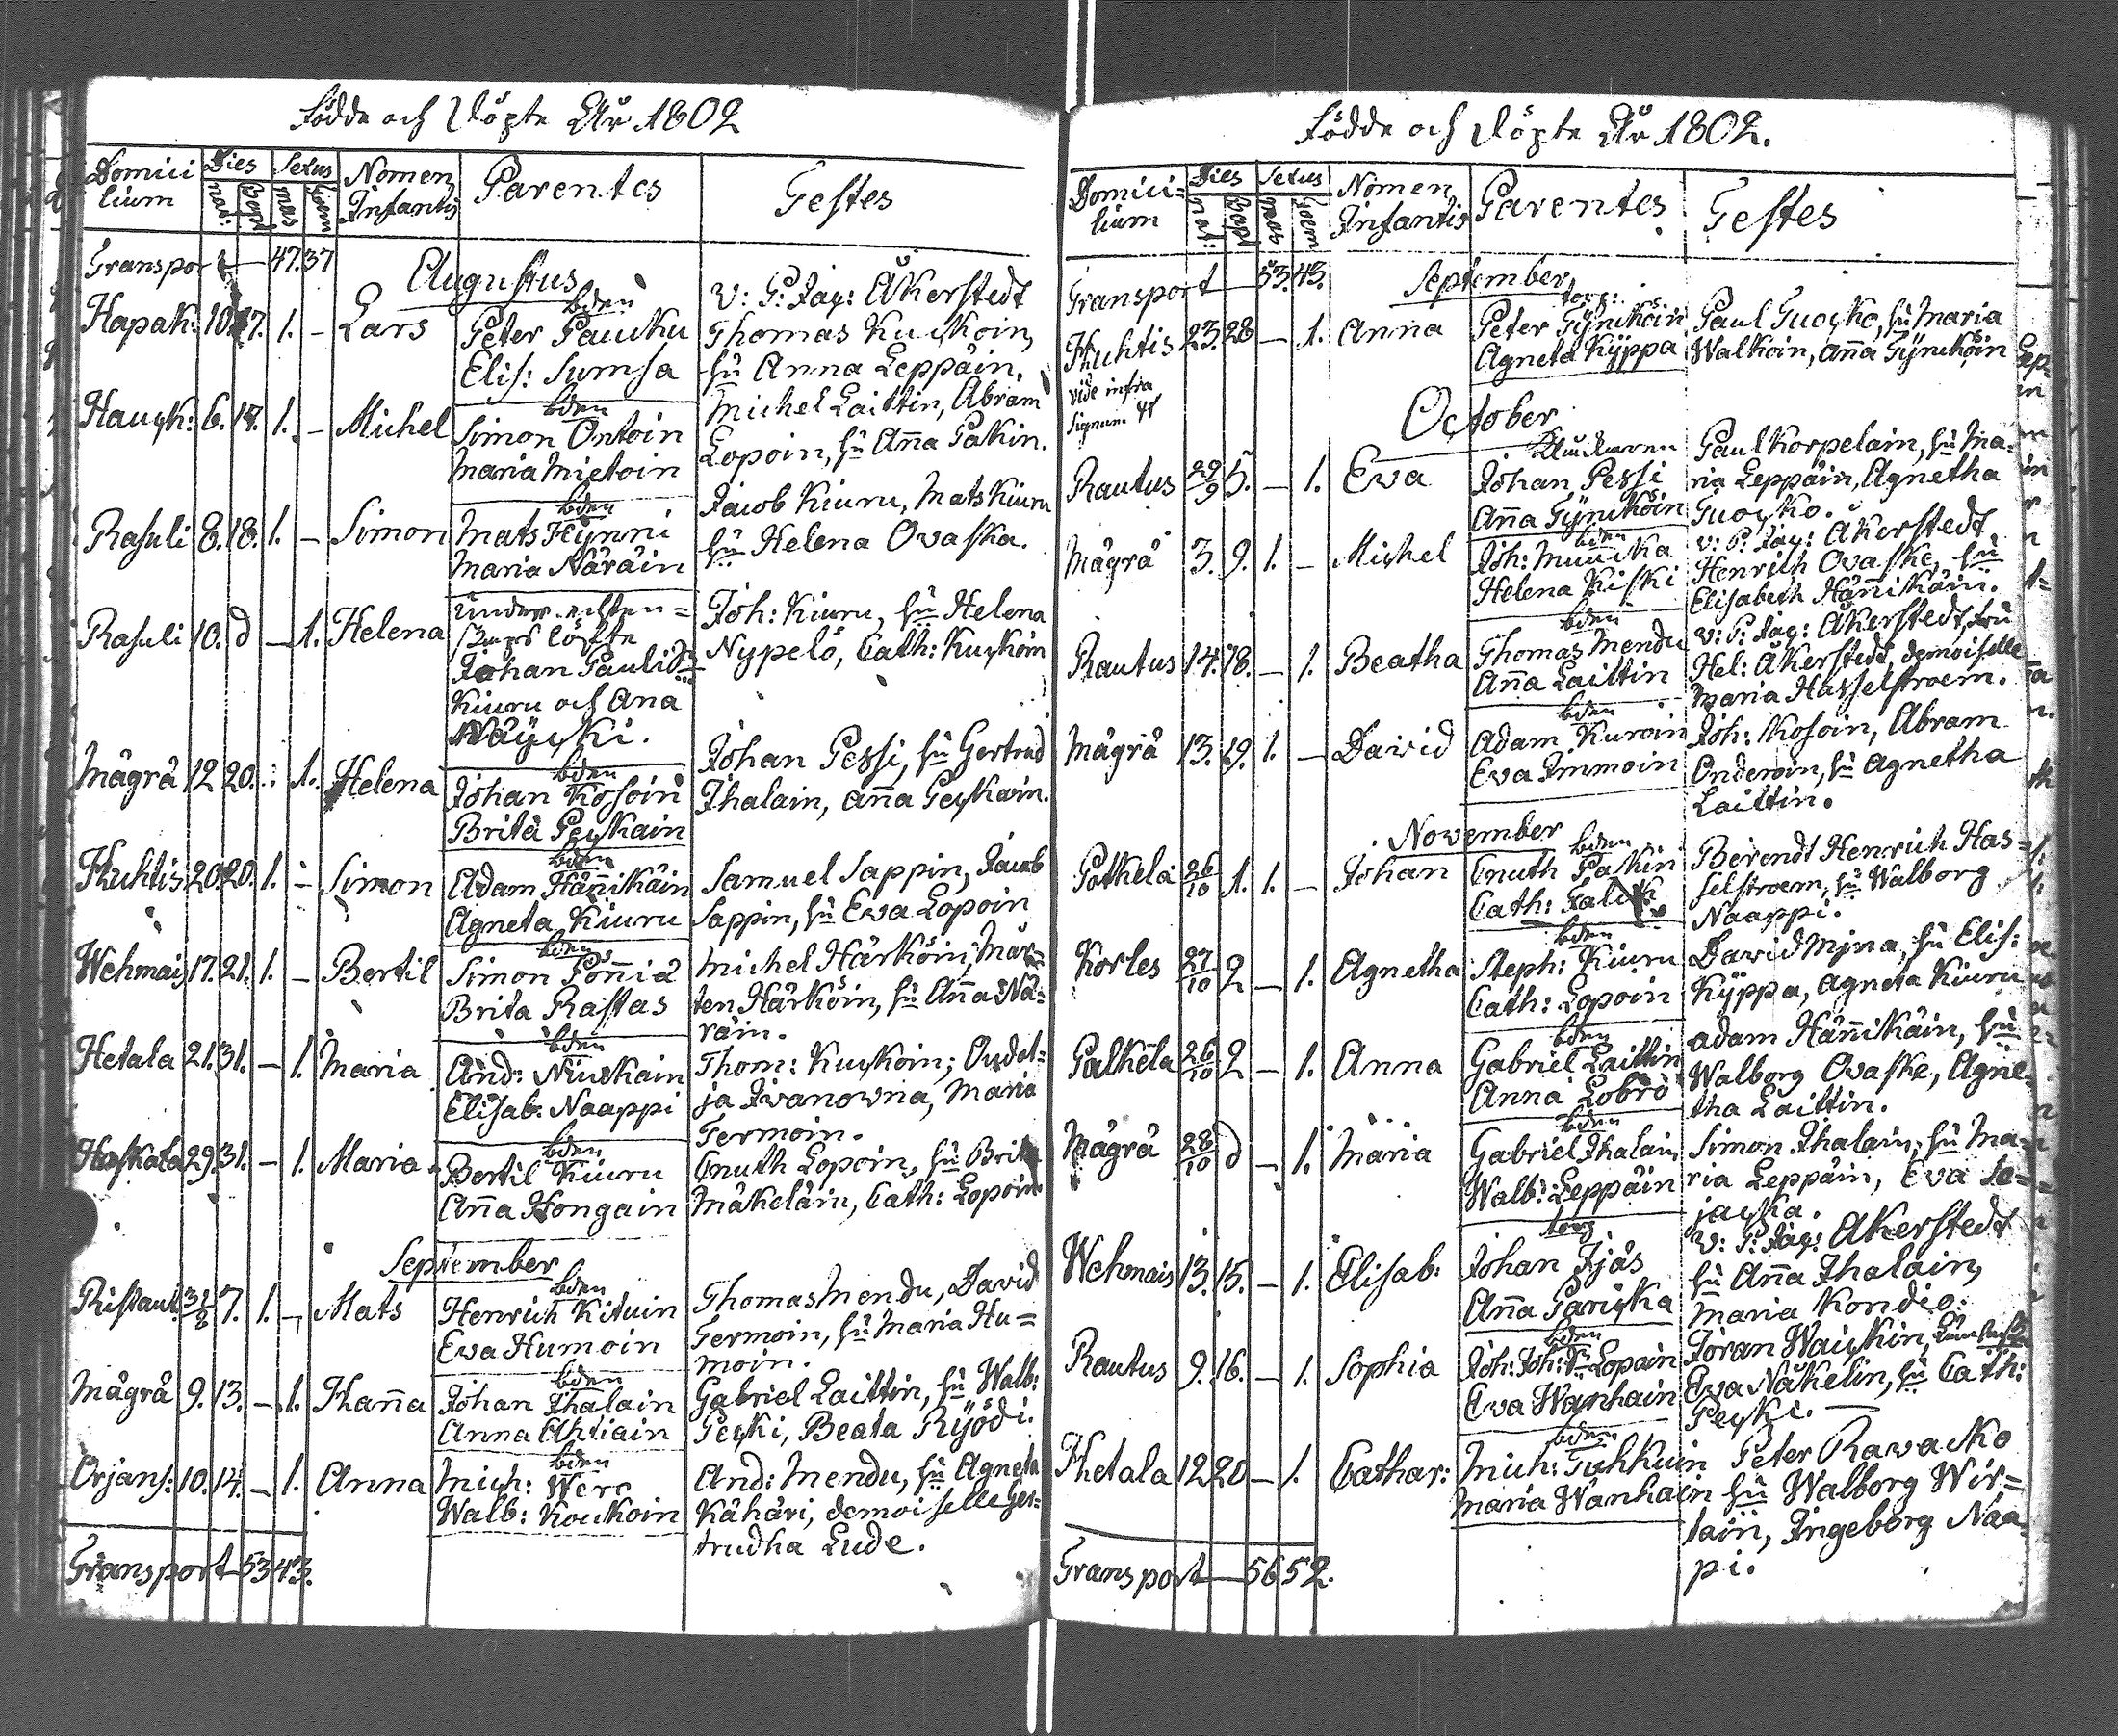 Födde och Döpte År 1802
Domici
lium
Dies
Sexus
Nomen
Infantis
Parentes
Testes
nati:
Bapt
mas
foem
Transport — 47. 37
Augustus
Hapak: 10. 17. 1. – Lars
bden
Peter Paucku
Elis: Sumsa
v: P: Jag: Åkerstedt
Thomas Kuckoin,
hu Anna Leppäin,
Hauck: 6. 18. 1. – Michel
bden
Simon Ontoin
Maria Mietoin
Michel Laittin, Abram
Lopoin, hu Anna Patkin.
Rasuli 8. 18. 1. – Simon
bden
Mats Hynni
Maria Näräin
Jacob Kiuru, Mats Kiuru
hu Helena Ovaska.
Rasuli 10. d – 1. Helena
under ecten=
löfte
Johan Pauli
Kiuru och Ana
Näycki.
Joh: Kiuru, hu Helena
Nypelö, Cath: Kuckoin
Mägrä 12 20. – 1. Helena
bden
Johan Kosoin
Brita Peckain
Johan Pessi, hu Gertrud
Ihalain, Anna Peckain.
Huhtis 20. 20. 1. – Simon
bden
Adam Hännikäin
Agneta Kiuru
Samuel Sappin, Jacob
Sappin, hu Eva Lopoin
Wehmais 17. 21. 1. – Bertil
bden
Simon Pönniä
Brita Rastas
Michel Härköin, Mår=
ten Härköin, hu Anna Nä=
räin.
Hetala 21. 31. – 1. Maria
bden
And: Niuskain
Elisab: Naappi
Thom: Kuckoin; Ovdot=
ja Ivanowna, Maria
Termoin.
29. 31. – 1. Maria
bden
Bertil Kiuru
Anna Hongain
Cnuth Lopoin, hu Brita
Mäkeläin, Cath: Lopoin
September
Ristaut: 31/8 7. 1. – Mats
bden
Henrich Kituin
Eva Humoin
Thomas Mendu, David
Termoin, hu Maria Hu=
moin.
Mägrä 9. 13. – 1. Hanna
bden
Johan Ihalain
Anna Ahtiain
Gabriel Laittin, hu Walb:
Pecki, Beata Ryödi.
Orjans: 10. 14. – 1. Anna
bden
Mich: Wero
Walb: Koukoin
And: Mendu, hu Agneta
Kähäri, demoiselle Ger=
trudha Lude.
Transport 53 43.
Födde och Döpte År 1802.
Domici=
lium
Dies
Sexus
Nomen
Infantis
Parentes
Testes
nat:
Bapt
mas
foem
Transport — 53. 43.
September
Huhtis 23. 28 – 1. Anna
vide infra
signum
torp:
Peter Tyncköin
Agneta Kyppa
Paul Tuocko, hu Maria
Walkoin, Anna Tyncköin
October
Rautus 29/9 5. – 1. Eva
Johan Pessi
Anna Tyncköin
Paul Korpelain, hu Ma=
ria Leppäin, Agnetha
Tuocko.
Mägrä 3. 9. 1. – Michel
bden
Joh: Muuika
Helena Kiski
v: P: Jag: Åkerstedt
Henrich Ovaske, hu
Elisabeth Hännikäin.
Rautus 14. 18. – 1. Beatha
bden
Thomas Mendu
Anna Laittin
v: P: Jag: Åkerstedt, fru
Hel: Åkerstedt, demoiselle
Maria Hasselstroem.
Mägrä 13. 19. 1. – David
bden
Adam Kuroin
Eva Immoin
Joh: Kosoin, Abram
Onderoin, hu Agnetha
Laittin.
November
Potkela 26/10 1. 1. – Johan
bden
Cnuth Paskin
Cath:
Berendt Henrich Has=
selstroem, hu Walborg
Naappi.
Korles 27/10 2 – 1. Agnetha
bden
Steph: Kiuru
Cath: Lopoin
David Myna, hu Elis:
Kyppa, Agneta Kiuru
Palkela 26/10 2 – 1. Anna
bden
Gabriel Laittin
Anna Lobro
Adam Hännikäin, hu
Walborg Ovaske, Agne=
tha Laittin.
Mägrä 28/10 d – 1. Maria
bden
Gabriel Ihalain
Walb: Leppäin
Simon Ihalain, hu Ma=
ria Leppäin, Eva Sa=
jacka.
Wehmais 13. 15. – 1. Elisab:
torp
Johan Ijäs
Anna Paricka
v: P: Jag: Åkerstedt
hu Anna Ihalain,
Maria Kondio:
Rautus 9. 16. – 1. Sophia
bden
Joh: Joh: Lopain
Eva Wanhain
Jöran Waickin,
Eva Näkelin, hu Cath:
Pecki. —
Hetala 12 20 – 1. Cathar:
bden
Mich: Tuhkuin
Maria Wanhain
Peter Rawacko
hu Walborg Wir=
lain, Ingeborg Naa=
pi.
Transport — 56 52.